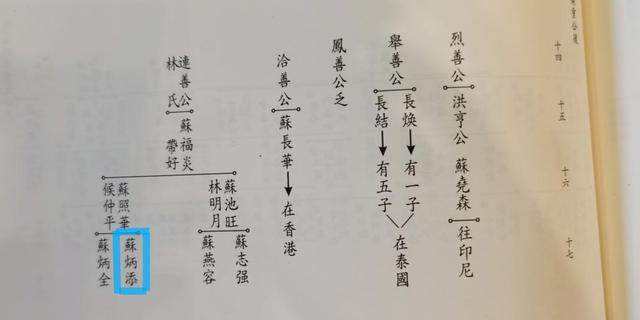 十四
十五
十六
十七
烈善公
洪亨公
蘇堯森
往印尼
舉善公
長煥
有一子
長結
有五子
在泰國
鳳善公乏
洽善公
蘇長華
在香港
連善公
林氏
蘇福炎
帶好
蘇池旺
林明月
蘇志强
蘇燕容
蘇照華
侯仲平
蘇炳添
蘇炳全